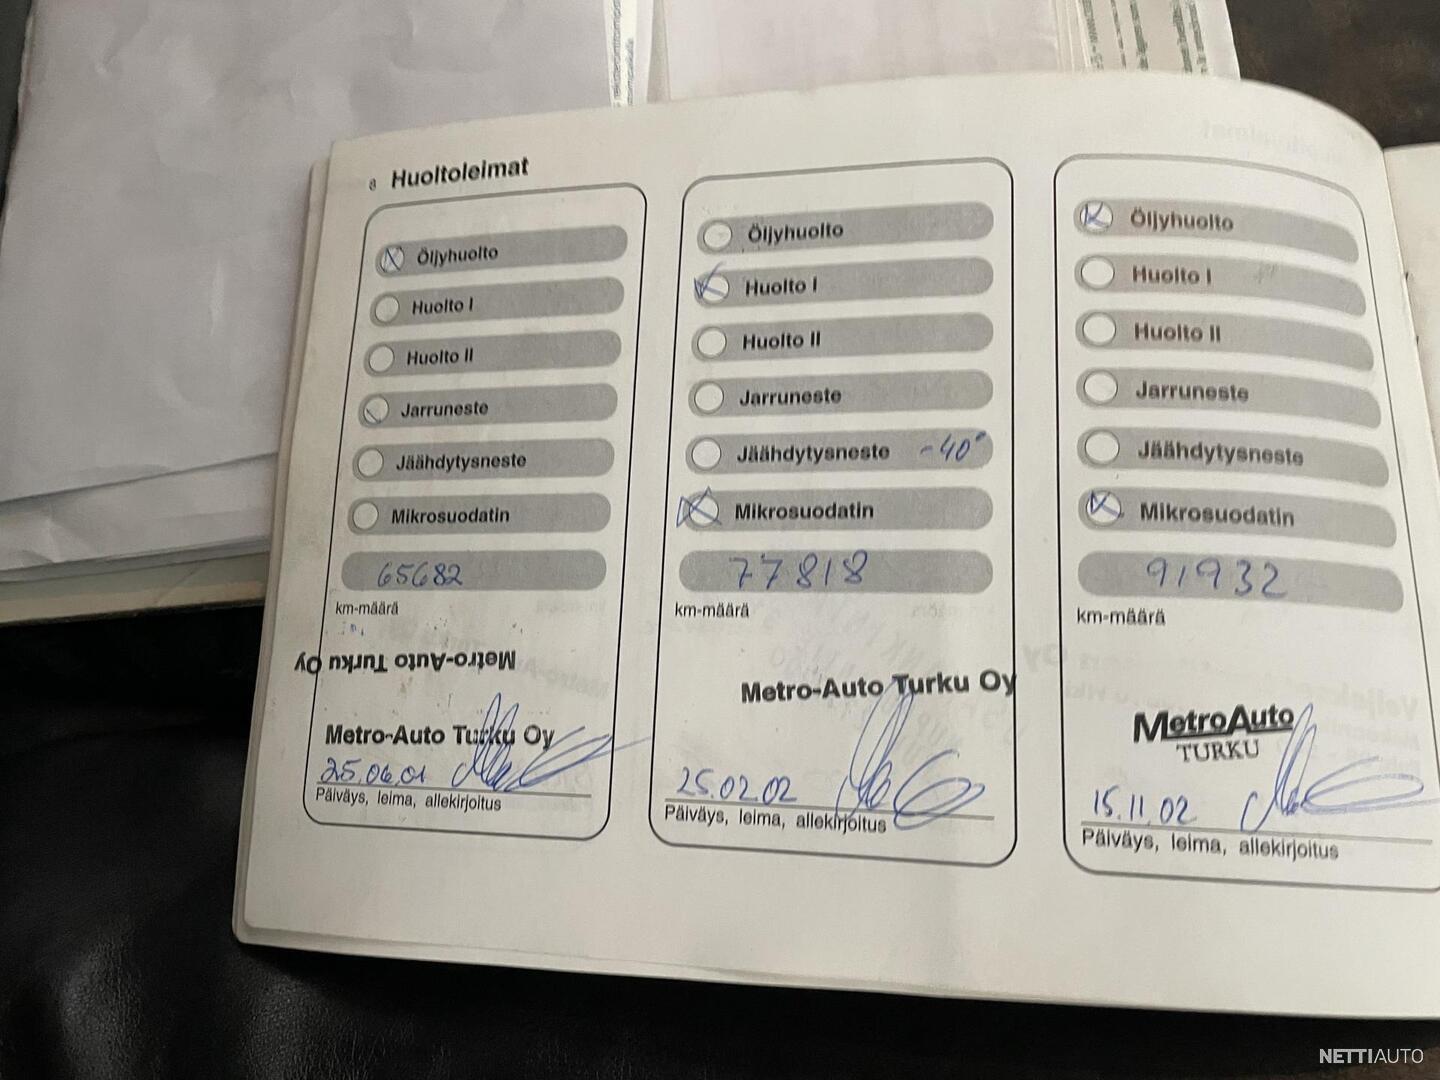 8 Huoltoleimat
Öljyhuolto
Huolto I
Huolto II
Jarruneste
Jäähdytysneste
Mikrosuodatin
65682
km-määrä
Metro-Auto Turku Oy
Metro-Auto Turku Oy
25.06.01
Päiväys, leima, allekirjoitus
Öljyhuolto
Huolto I
Huolto II
Jarruneste
Jäähdytysneste -40°
Mikrosuodatin
77818
km-määrä
Metro-Auto Turku Oy
25.02.02
Päiväys, leima, allekirjoitus
Öljyhuolto
Huolto I
Huolto II
Jarruneste
Jäähdytysneste
Mikrosuodatin
91932
km-määrä
MetroAuto
TURKU
15.11.02
Päiväys, leima, allekirjoitus
NETTIAUTO